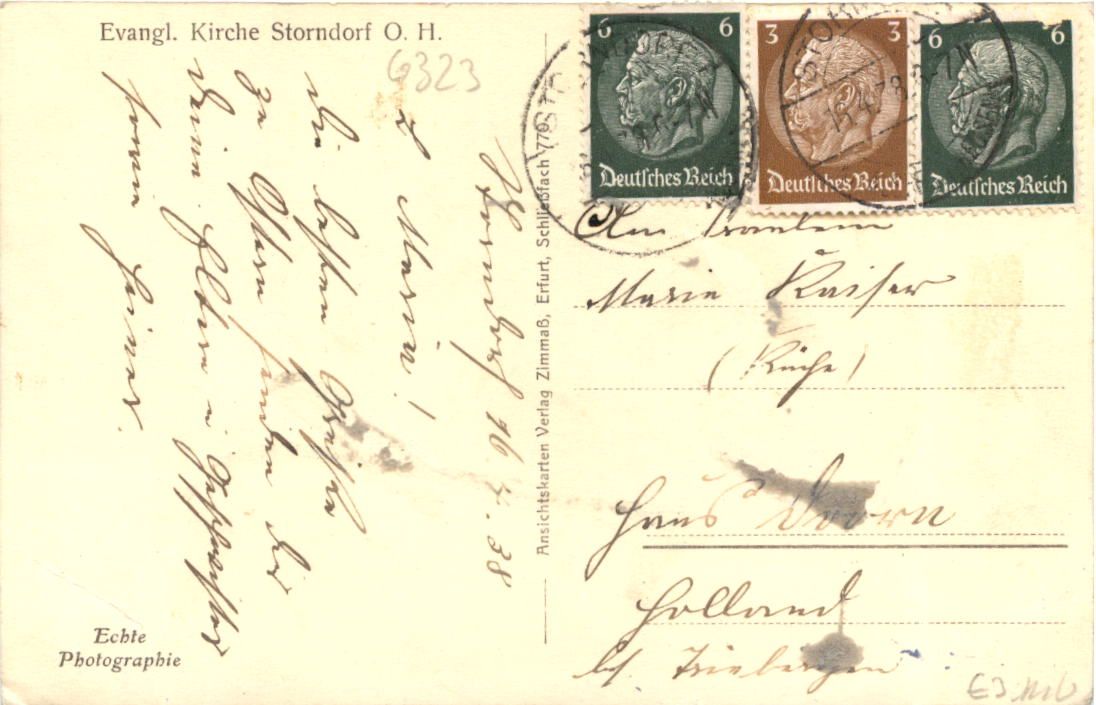 Evangl. Kirche Storndorf O. H.
6323
Storndorf 16 4. 38
L Marie!
Die besten Grüße
zu Ostern senden dir
Deine Eltern u Geschwister
sowie Heiner.
Echte
Photographie
Ansichtskarten Verlag Zimmaß, Erfurt, Schließfach 770
6 6
Deutsches Reich
3 3
Deutsches Reich
6 6
Deutsches Reich
An Fräulein
Marie Kaiser
(Küche)
Haus Doorn
Holland